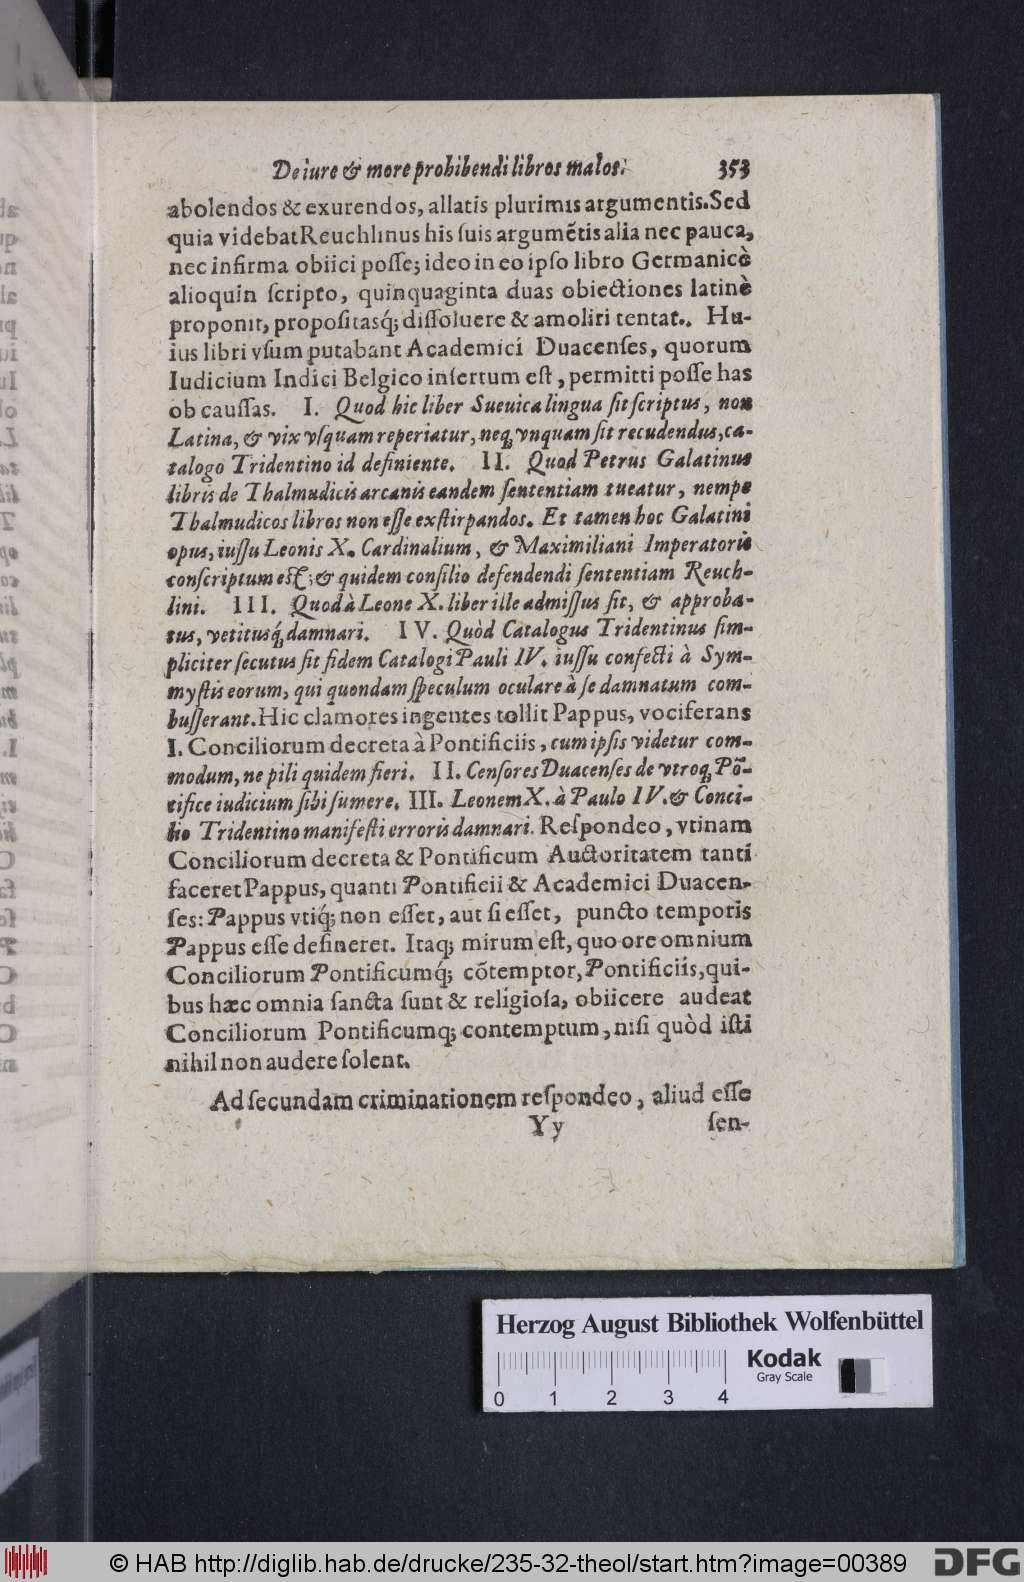 De iure & more prohibendi libros malos. 353
abolendos & exurendos, allatis plurimis argumentis. Sed
quia videbat Reuchlinus his ſuis argumẽtis alia nec pauca,
nec infirma obiici poſſe; ideo in eo ipſo libro Germanicè
alioquin ſcripto, quinquaginta duas obiectiones latinè
proponit, propoſitasq́; diſſoluere & amoliri tentat. Hu-
ius libri vſum putabant Academici Duacenſes, quorum
Iudicium Indici Belgico inſertum eſt, permitti poſſe has
ob cauſſas. I. Quod hic liber Sueuica lingua ſit ſcriptus, non
Latina, & vix vſquam reperiatur, neq; vnquam ſit recudendus, ca-
talogo Tridentino id definiente. II. Quod Petrus Galatinus
libris de Thalmudicis arcanis eandem ſententiam tueatur, nempe
Thalmudicos libros non eſſe exſtirpandos. Et tamen hoc Galatini
opus, iuſſu Leonis X. Cardinalium, & Maximiliani Imperatoris
conſcriptum eſt; & quidem conſilio defendendi ſententiam Reuch-
lini. III. Quod à Leone X. liber ille admiſſus ſit, & approba-
tus, vetitusq́; damnari. IV. Quòd Catalogus Tridentinus ſim-
pliciter ſecutus ſit fidem Catalogi Pauli IV. iuſſu confecti à Sym-
myſtis eorum, qui quondam ſpeculum oculare à ſe damnatum com-
buſſerant. Hic clamores ingentes tollit Pappus, vociferans
I. Conciliorum decreta à Pontificiis, cum ipſis videtur com-
modum, ne pili quidem fieri. II. Cenſores Duacenſes de vtroq; Põ-
tifice iudicium ſibi ſumere. III. Leonem X. à Paulo IV. & Conci-
lio Tridentino manifeſti erroris damnari. Reſpondeo, vtinam
Conciliorum decreta & Pontificum Auctoritatem tanti
faceret Pappus, quanti Pontificii & Academici Duacen-
ſes: Pappus vtiq́; non eſſet, aut ſi eſſet, puncto temporis
Pappus eſſe deſineret. Itaq; mirum eſt, quo ore omnium
Conciliorum Pontificumq́; cõtemptor, Pontificiis, qui-
bus hæc omnia ſancta ſunt & religioſa, obiicere audeat
Conciliorum Pontificumq; contemptum, niſi quòd iſti
nihil non audere ſolent.
Ad ſecundam criminationem reſpondeo, aliud eſſe
Yy ſen-
Herzog August Bibliothek Wolfenbüttel
Kodak
Gray Scale
0 1 2 3 4
© HAB http://diglib.hab.de/drucke/235-32-theol/start.htm?image=00389
DFG